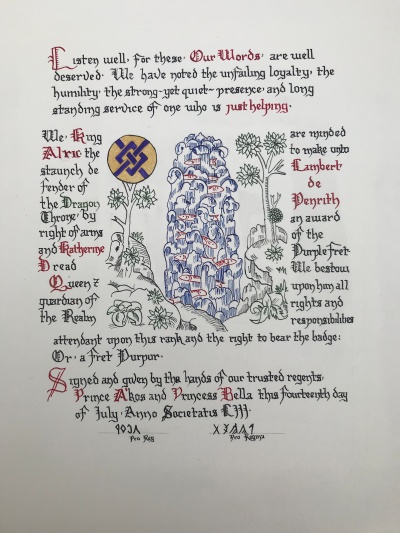 Listen well, for these Our Words, are well
deserved. We have noted the unfailing loyalty, the
humility, the strong-yet quiet-presence, and long
standing service of one who is just helping.
We, King
Alric the
staunch de
fender of
the Dragon
Throne by
right of arms
and Katherine
Dread
Queen &
guardian of
the Realm
are minded
to make unto
Lambert
de
Penrith
an award
of the
Purple Fret
We bestow
upon him all
rights and
responsibilities
attendant upon this rank and the right to bear the badge:
Or, a fret Purpur.
Signed and given by the hands of our trusted regents,
Prince Akos and Princess Bella this fourteenth day
of July, Anno Societatis LIII.
Pro Reg
Pro Regina